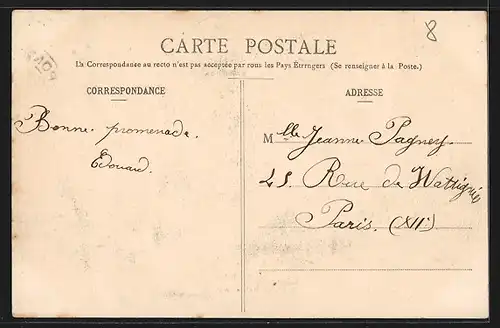 8
CARTE POSTALE
La Correspondance au recto n'est pas acceptée par tous les Pays Étrangers (Se renseigner à la Poste.)
CORRESPONDANCE
Bonne promenade.
Edouard.
ADRESSE
Mlle Jeanne Pagney.
25 Rue de Wattignies
Paris. (XIIe)